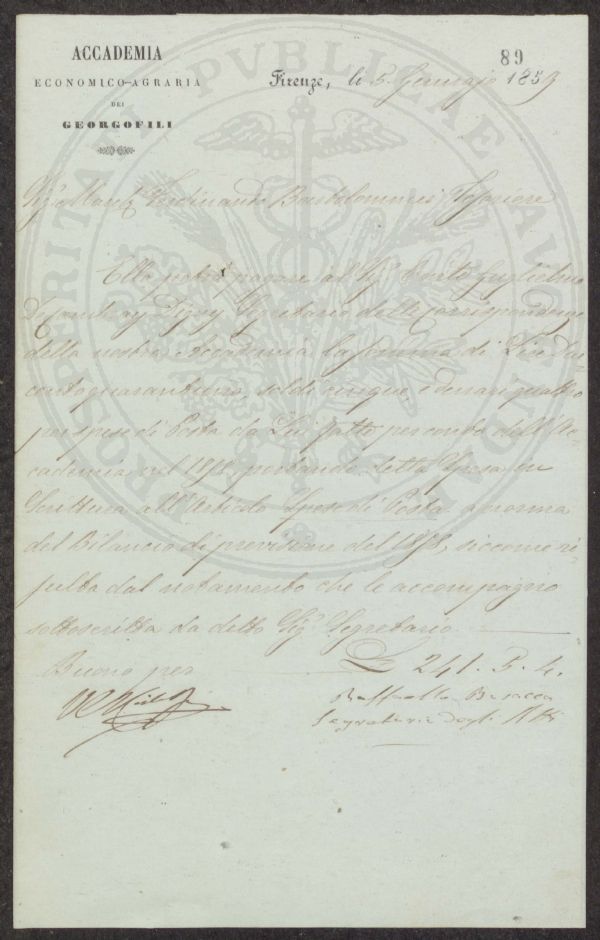 89
ACCADEMIA
ECONOMICO-AGRARIA
DEI
GEORGOFILI
Firenze, li 5 Gennajo 1859
Sig.r March.e Ferdinando Bartolommei Tesoriere
Ella potrà pagare al Sig.r Conte Guglielmo
Digny Segretario delle corrispondenze
della nostra Accademia la somma di Lire Du-
centoquarantuno, soldi cinque, e denari quattro
per spese di Posta da Lui fatte per conto dell'Ac-
cademia nel 1858, portando detta Spesa in
Scrittura all'Articolo Spese di Posta a norma
del Bilancio di previsione del 1858, siccome ri-
sulta dal notamento che le accompagno
sottoscritto da detto Sig.r Segretario
Buono per £ 241. 5. 4.
Raffaello Busacca
Segretario degli Atti
PROSPERITATI PVBLICAE AVGENDAE